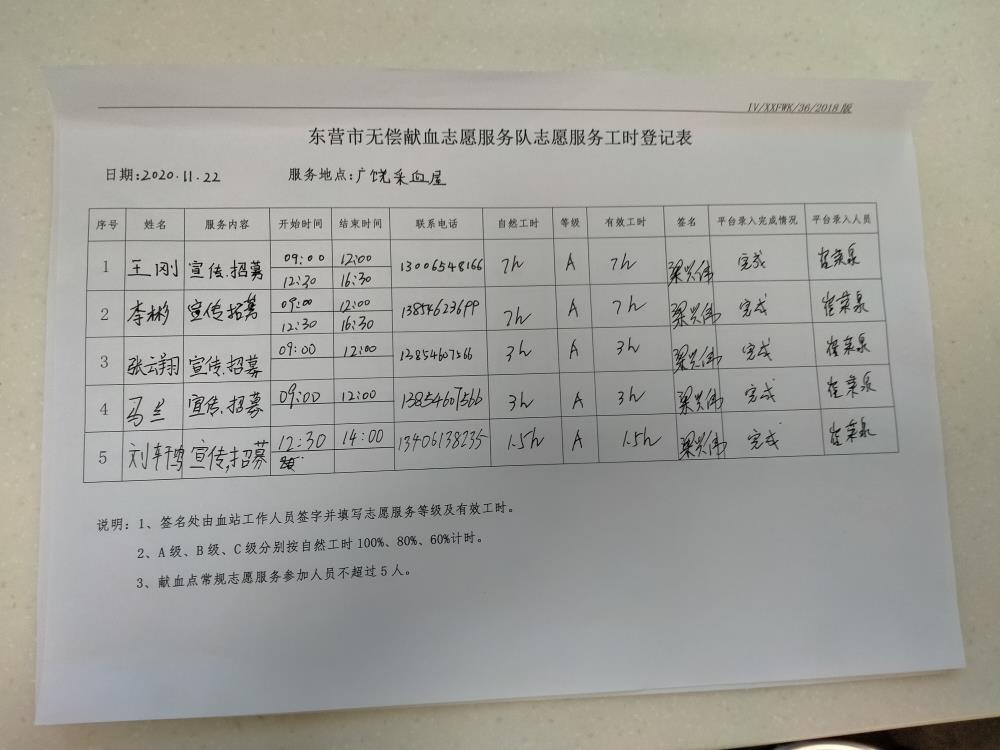 IV/XXFWK/36/2018版
东营市无偿献血志愿服务队志愿服务工时登记表
日期:2020.11.22 服务地点:广饶采血屋
序号 姓名 服务内容 开始时间 结束时间 联系电话 自然工时 等级 有效工时 签名 平台录入完成情况 平台录入人员
1 王刚 宣传.招募 09:00 12:00 13006548166 7h A 7h 梁兴伟 完成 崔荣泉
12:30 16:30
2 李彬 宣传.招募 09:00 12:00 13854623699 7h A 7h 梁兴伟 完成 崔荣泉
12:30 16:30
3 张云翔 宣传.招募 09:00 12:00 13854607566 3h A 3h 梁兴伟 完成 崔荣泉
4 马兰 宣传.招募 09:00 12:00 13854607566 3h A 3h 梁兴伟 完成 崔荣泉
5 刘轩鸣 宣传,招募 12:30 14:00 13406138235 1.5h A 1.5h 梁兴伟 完成 崔荣泉
说明：1、签名处由血站工作人员签字并填写志愿服务等级及有效工时。
2、A级、B级、C级分别按自然工时100%、80%、60%计时。
3、献血点常规志愿服务参加人员不超过5人。